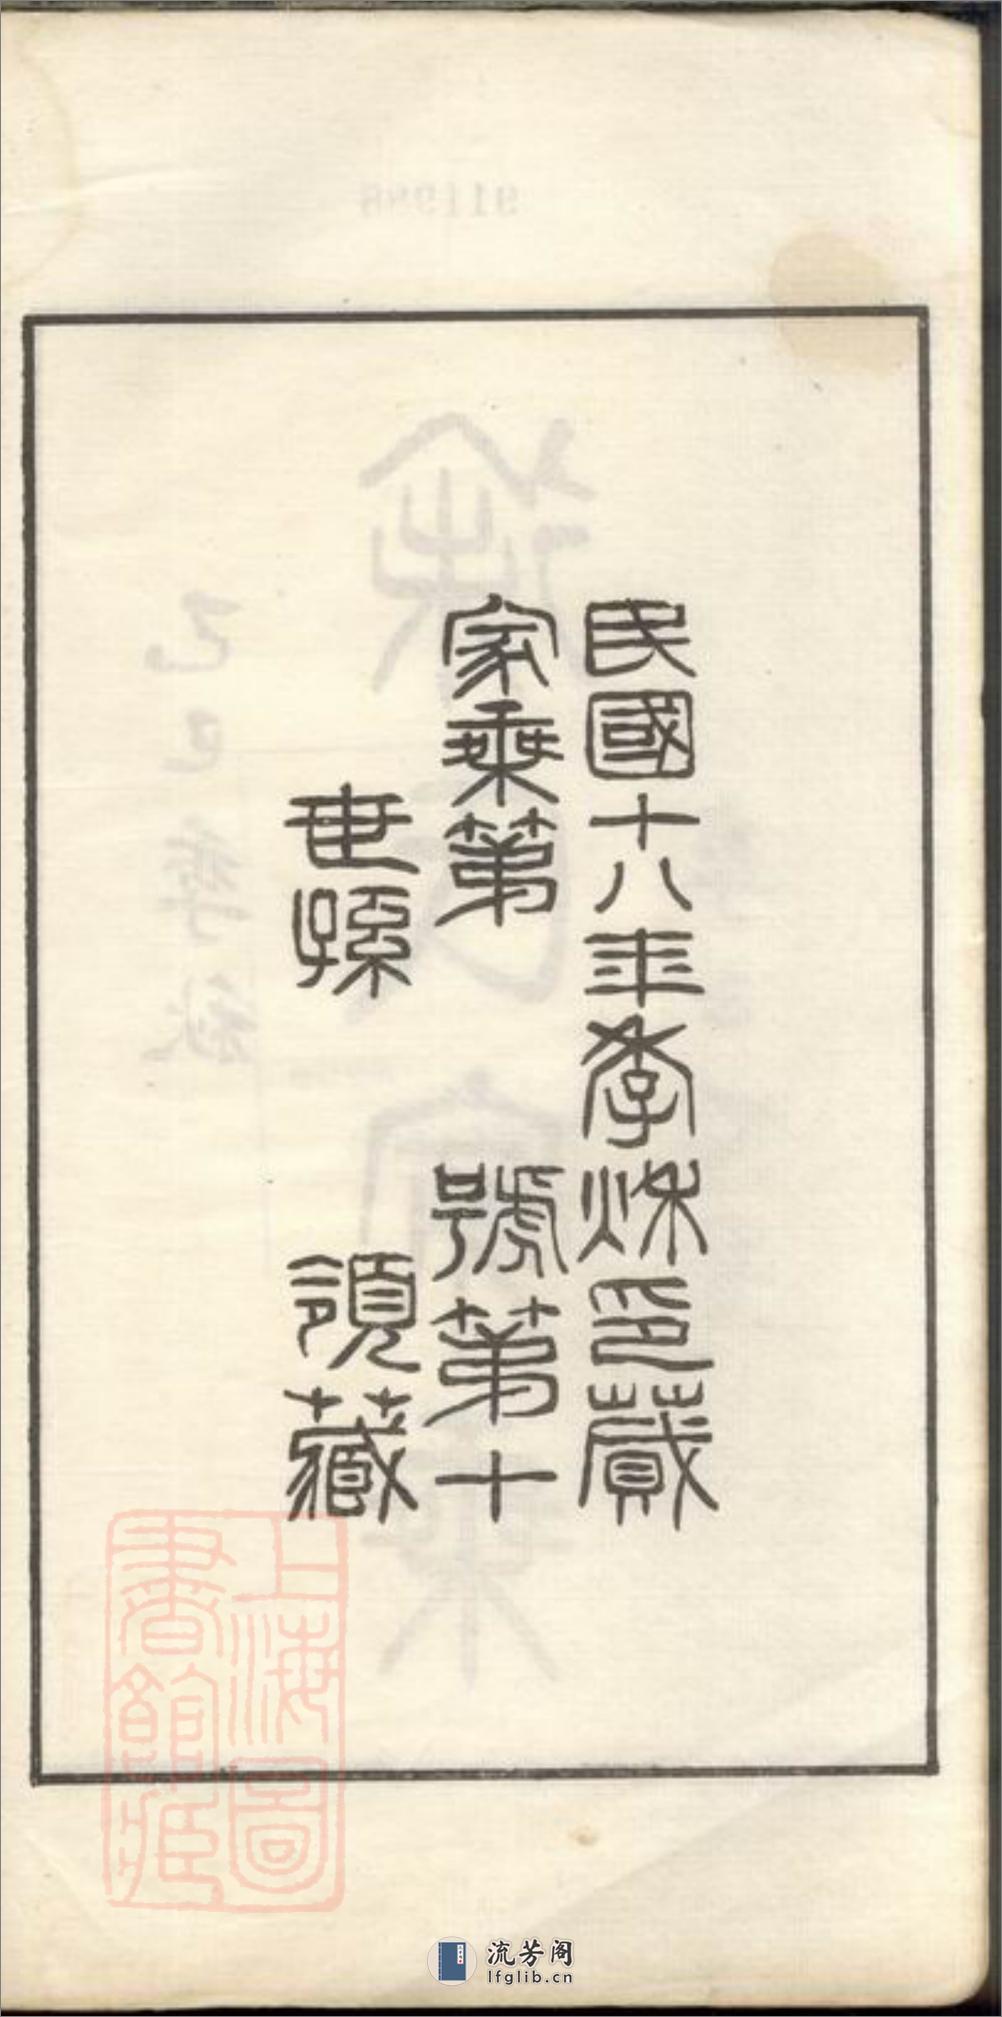 民國十八年季秌印蕆
家乘第　號第十
世孫　領藏
上海圖
書館藏
流芳阁
lfglib.cn